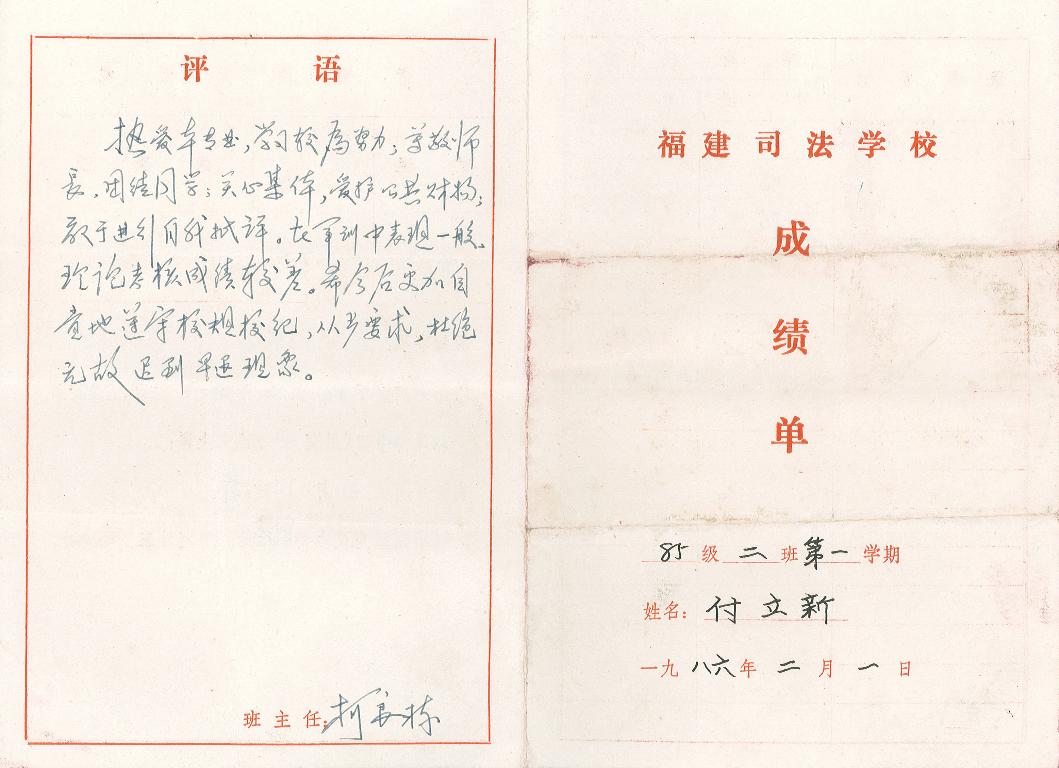 评 语
热爱本专业,学习较为努力;尊敬师
长,团结同学;关心集体,爱护公共财物;
敢于进行自我批评。在军训中表现一般,
理论考核成绩较差。希今后更加自
觉地遵守校规校纪,从严要求,杜绝
无故迟到早退现象。
班主任:柯良栋
福建司法学校
成
绩
单
85级二班第一学期
姓名:付立新
一九八六年二月一日